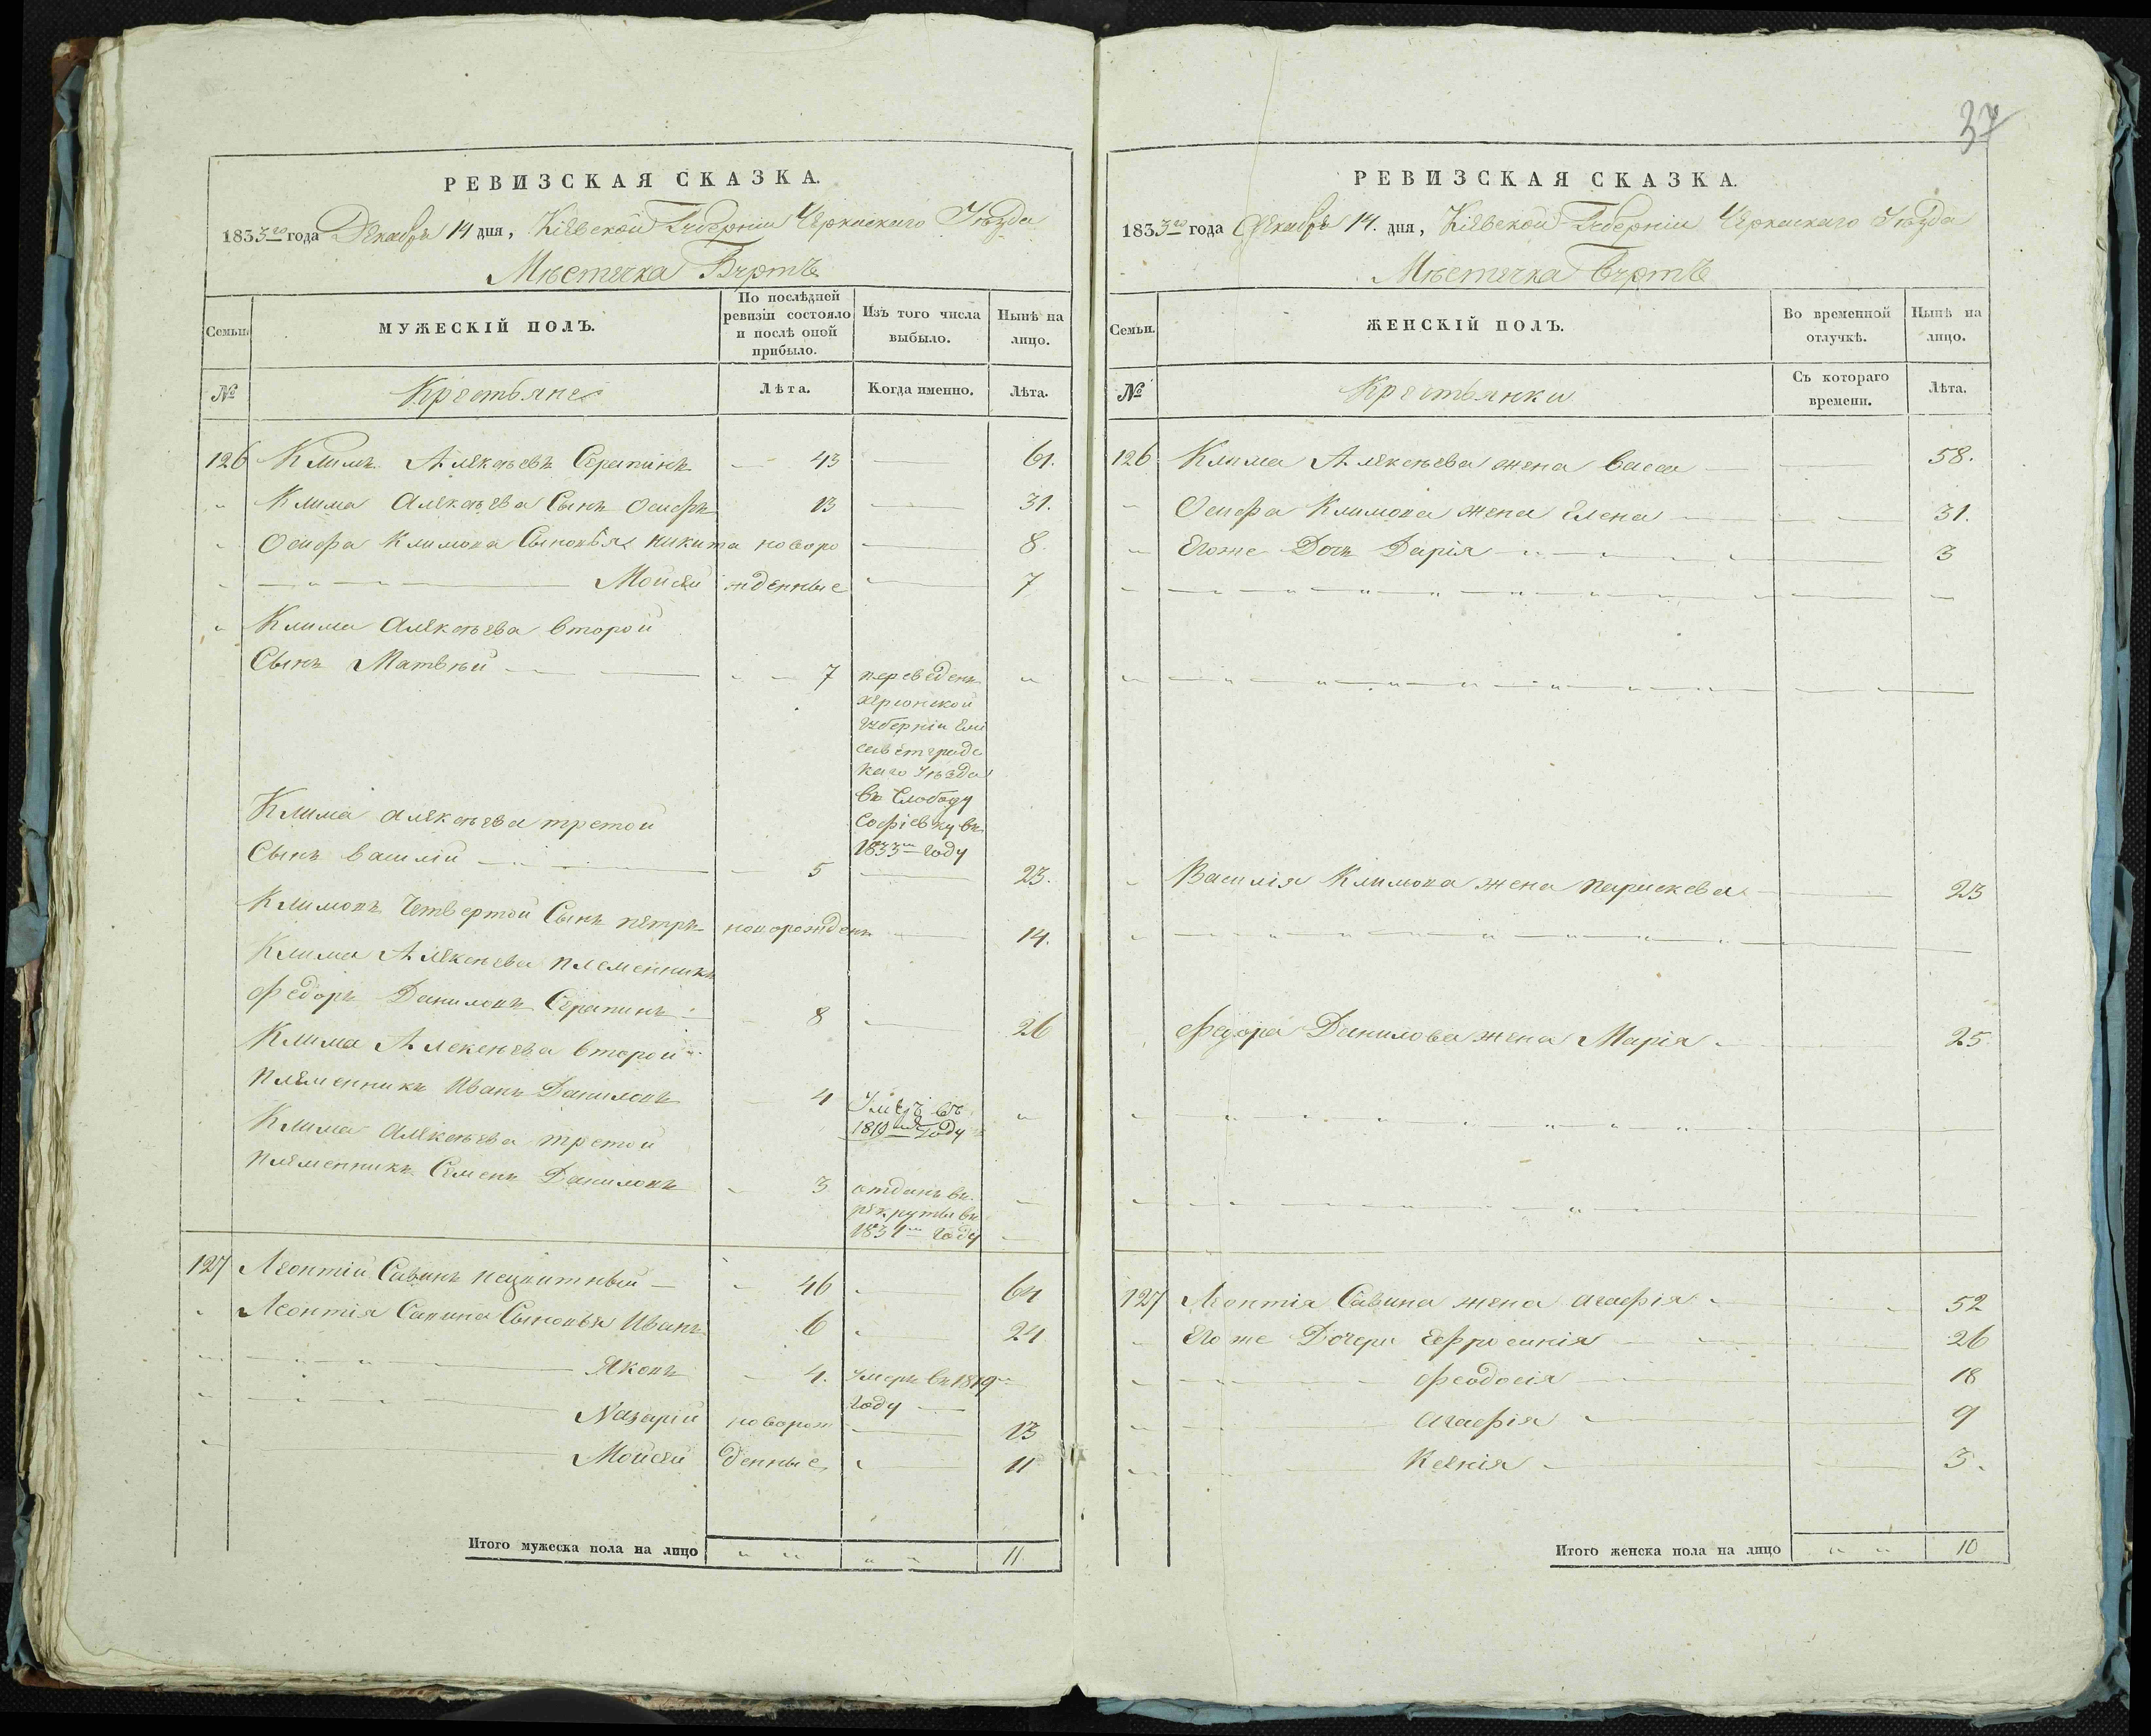 37
РЕВИЗСКАЯ СКАЗКА.
1833го года Декабря 14 дня, Кіевской Губерніи Черкаскаго Уѣзда
Мѣстечка Буртъ
Семьи.
МУЖЕСКІЙ ПОЛЪ.
По послѣдней ревизіи состояло и послѣ оной прибыло.
Изъ того числа выбыло.
Нынѣ на лицо.
№
Крестьяне
Лѣта.
Когда именно.
Лѣта.
126 Климъ Алексѣевъ Серапинъ 43 61.
Клима Алексѣева Сынъ Осифъ 13 31.
Осифа Климова Сыновья Никита новоро 8
Мойсей жденные 7
Клима Алексѣева второй
Сынъ Матвѣй 7 переведенъ
херсонской
губерніи Ели
саветградс
каго Уѣзда
въ Слободу
Софіевку въ
1833м году
Клима Алексѣева третой
Сынъ Василій 5 23.
Климовъ Четвертой Сынъ Петръ новорожденъ 14.
Клима Алексѣева племенникъ
Федоръ Даниловъ Серапинъ 8 26
Клима Алексѣева второй
племенникъ Иванъ Даниловъ 4 Умеръ въ
1819м году
Клима Алексѣева третой
племенникъ Семенъ Даниловъ 3 отданъ въ
рекруты въ
1831м году
127 Леонтій Савинъ 46 64
Леонтія Савина Сыновья Иванъ 6 24
Яковъ 4. Умеръ въ 1819м
году
Назарій новорож 13
Мойсей денные 11
Итого мужеска пола на лицо 11
РЕВИЗСКАЯ СКАЗКА.
1833го года Декабря 14. дня, Кіевской Губерніи Черкаскаго Уѣзда
Мѣстечка Буртъ
Семьи.
ЖЕНСКІЙ ПОЛЪ.
Во временной отлучкѣ.
Нынѣ на лицо.
№
Крестьянки
Съ котораго времени.
Лѣта.
126 Клима Алексѣева жена Васа 58.
Осифа Климова жена Елена 31.
Егоже Дочь Дарія 3
Василія Климова жена Параскева 23
Федора Данилова жена Марія 25
127 Леонтія Савина жена Агафія 52
Его же Дочери Ефросинія 26
Феодосія 18
Агафія 9
Ксенія 3.
Итого женска пола на лицо 10